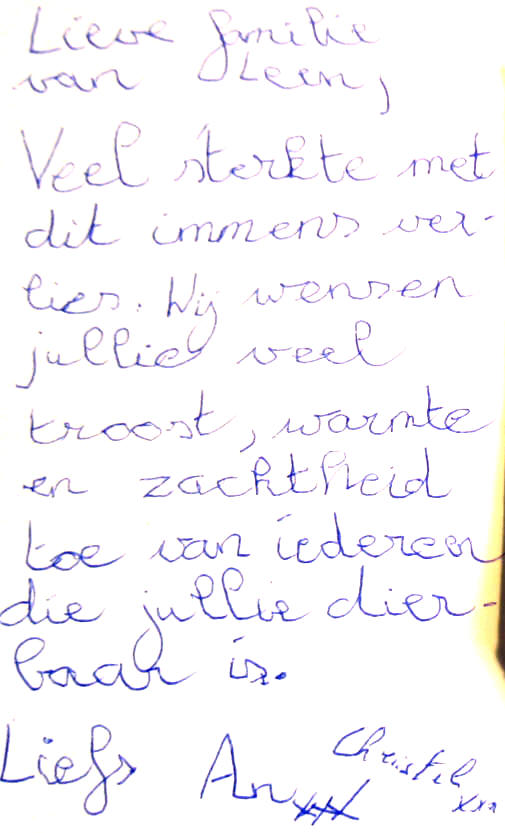 Lieve familie
van Leen,
Veel sterkte met
dit immens ver-
lies. Wij wensen
jullie veel
troost, warmte
en zachtheid
toe van iedereen
die jullie dier-
baar is.
Liefs An xxx Christel xxx